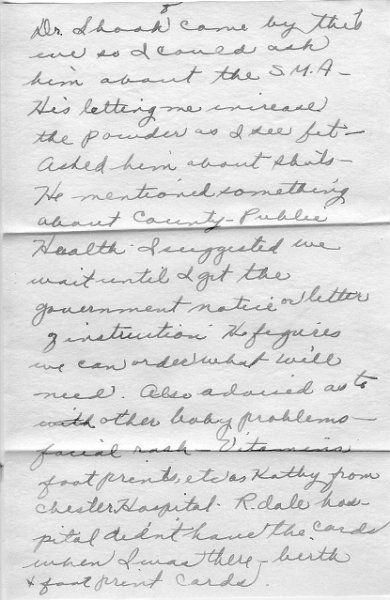 8
Dr. Shook came by this
eve so I could ask
him about the S.M.A -
His letting me increase
the powder as I see fit -
Asked him about shots -
He mentioned something
about County - Public
Health. I suggested we
wait until I get the
government notice or letter
of instruction. He figures
we can order what will
need. Also advised as to
with other baby problems -
facial rash - Vitamins
foot prints, etc as Kathy from
Chester Hospital. R.dale hos-
pital didn't have the cards
when I was there - berth
& foot print cards.